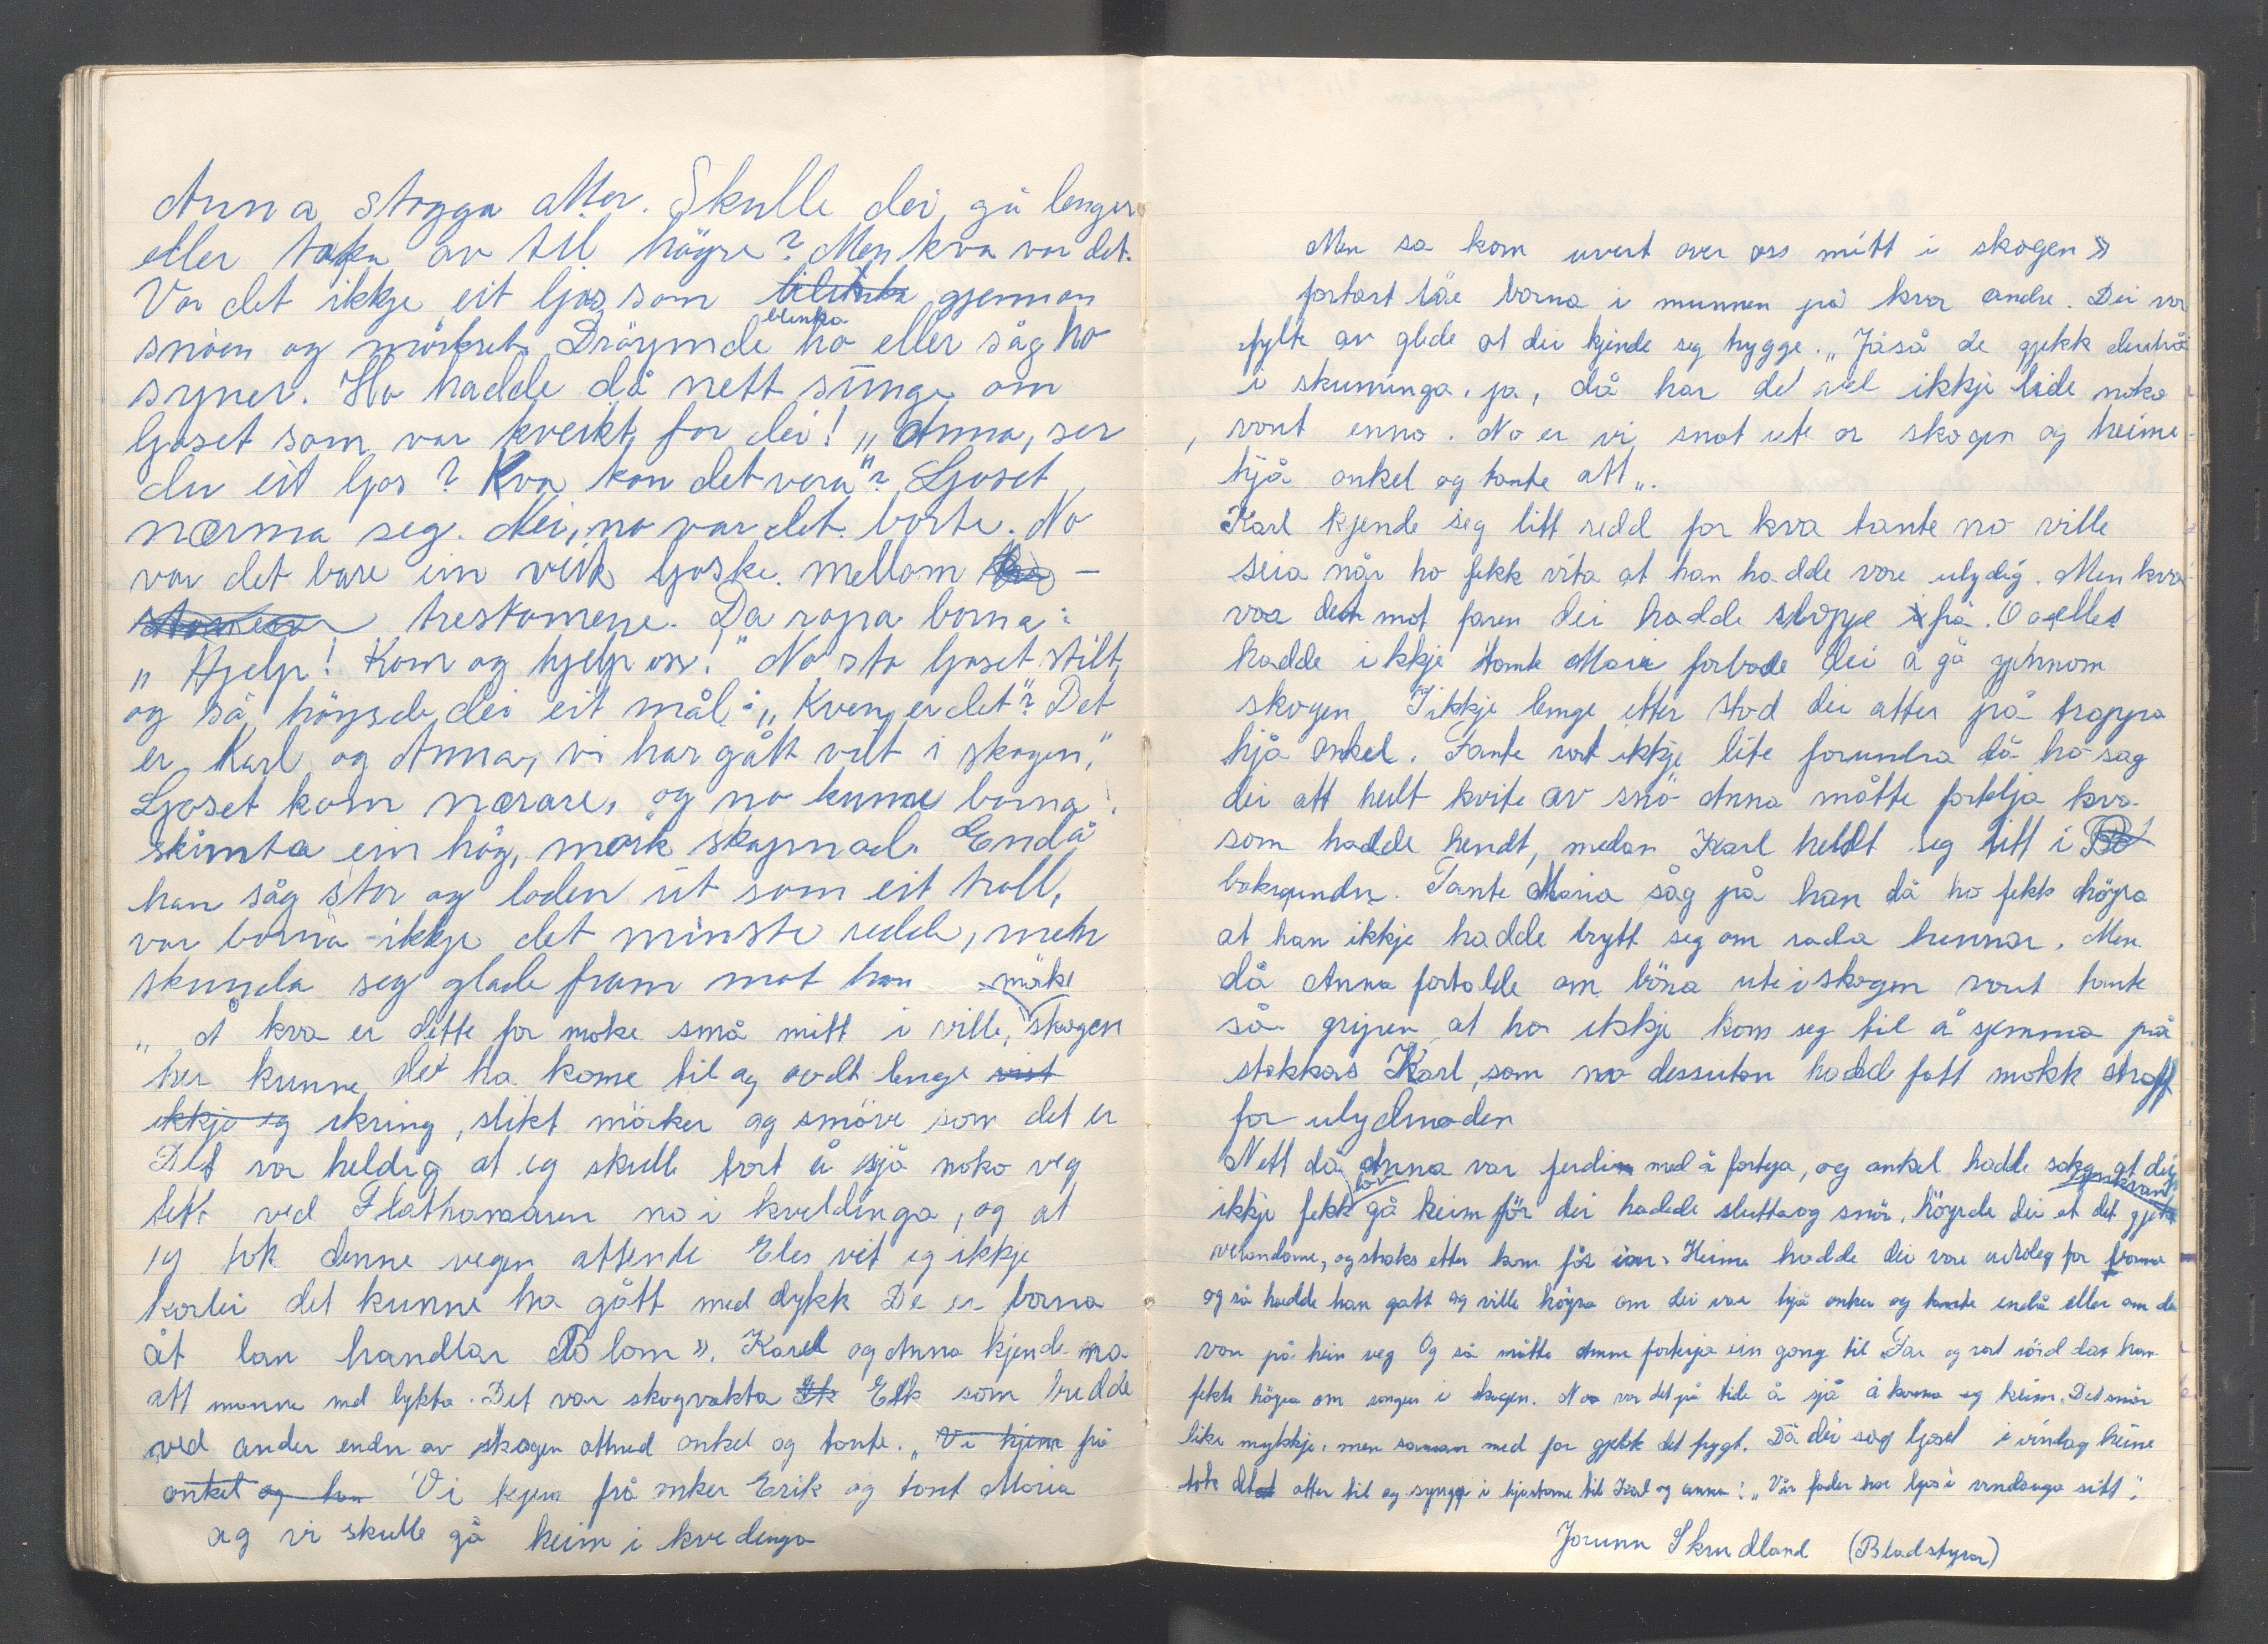 Anna stogga atter. Skulle dei gå lenger
eller taka av til högre? Men kva var det.
Var det ikkje eit ljos som blinka gjennon
snöen og mörkret. Dröymde ho eller såg ho
syner. Ho hadde då nett sunge om
ljoset som var kveikt for dei! „Anna, ser
du eit ljos? Kva kan det vera"? Ljoset
nærma seg. Nei, no var det borte. No
var det bare ein veik ljoske mellom –
trestomene. Da ropa borna:
„Hjelp! Kom og hjelp oss!" No sto ljoset stilt,
og så höyrde dei eit mål: „Kven er det"? Det
er Karl og Anna, vi har gått vilt i skogen,"
Ljoset kom nærare, og no kunne borna
skimta ein hög, mork skapnad. Endå
han såg stor og loden ut som eit troll,
var borna ikkje det minste redde, men
skunda seg glade fram mot han
„Å kva er dette for noke små mitt i ville, möke skogen
her kunne det ha kome til og ovdt lenge vist
ikkje eg ikring, slikt mörker og snöve som det er
Det var heldig at eg skulle bort å sjå noko veg
tett ved Flathamaren no i kveldinga, og at
eg tok denne vegen attende Eles vit eg ikkje
korlei det kunne ha gått med dykk De er borna
åt lan handlar Dalom». Karl og Anna kjende no
att manne med lykta. Det var skogvakta Eik som budde
ved ander enden av skogen attmed onkel og tante. „Vi kjem frå
onkel og han Vi kjem frå onker Erik og tant Maria
og vi skulle gå heim i kvedinga
Men sa kom uvert over oss mitt i skogen»
fortart täe borna i munnen på kvar andre. Dei var
fylte av glede at dei kjende seg trygge. „Jåså de gjekk
i skuminga, ja, då har de vel ikkje lide noko
vont enno. No er vi snot ute or skogen og heime
hjå onkel og tante att„.
Karl kjende seg litt redd for kva tante no ville
seia når ho fekk vita at han hadde vore ulydig. Men kva
var det mot faren dei hadde sloppe ifrå. O
hadde ikkje tante Maria forbode dei å gå gjennom
skogen Iikkje lenge etter stod dei atter på trappa
hjå onkel. Tante vart ikkje lite forundra då ho sag
dei att heilt kvite av snö Anna måtte fortelja kva
som hadde hendt, medan Karl heldt seg litt i
bakgrundn. Tante Maria såg på han då ho fekk höyra
at han ikkje hadde brytt seg om rada hennar. Men
då Anna fortalde om böna ute i skogen vart tante
så gripen at ho ikkje kom seg til å skjenna på
stakkars Karl, som no dessuton hadde fått nokk straff
for ulydnaden
Nett då Anna var ferdi med å forteja, og onkel hadde sakg at dei
ikkje fekk lov gå heim för dei hadde slutta og snör, höyrde dei at det gjekk
verandane, og straks etter kom far inn. Heime hadde dei vore uroleg for borna
og så hadde han gatt og ville höyra om dei var hjå onker og tante endå eller om dei
var på heim veg Og så måtte Anna forteja ein gong til Far og vart rörd dan han
fekk höyra om songen i skogen. No var det på tide å sjå å koma seg heim. Det snör
like mykkje, men saman med far gjekk det trygt. Då dei såg ljoset i vindog heime
tok det atter til og syngge i hjartane til Karl og anna: „Vår fader har ljos i vindauga sitt".
Jorunn Skrudland (Bladstyrar)